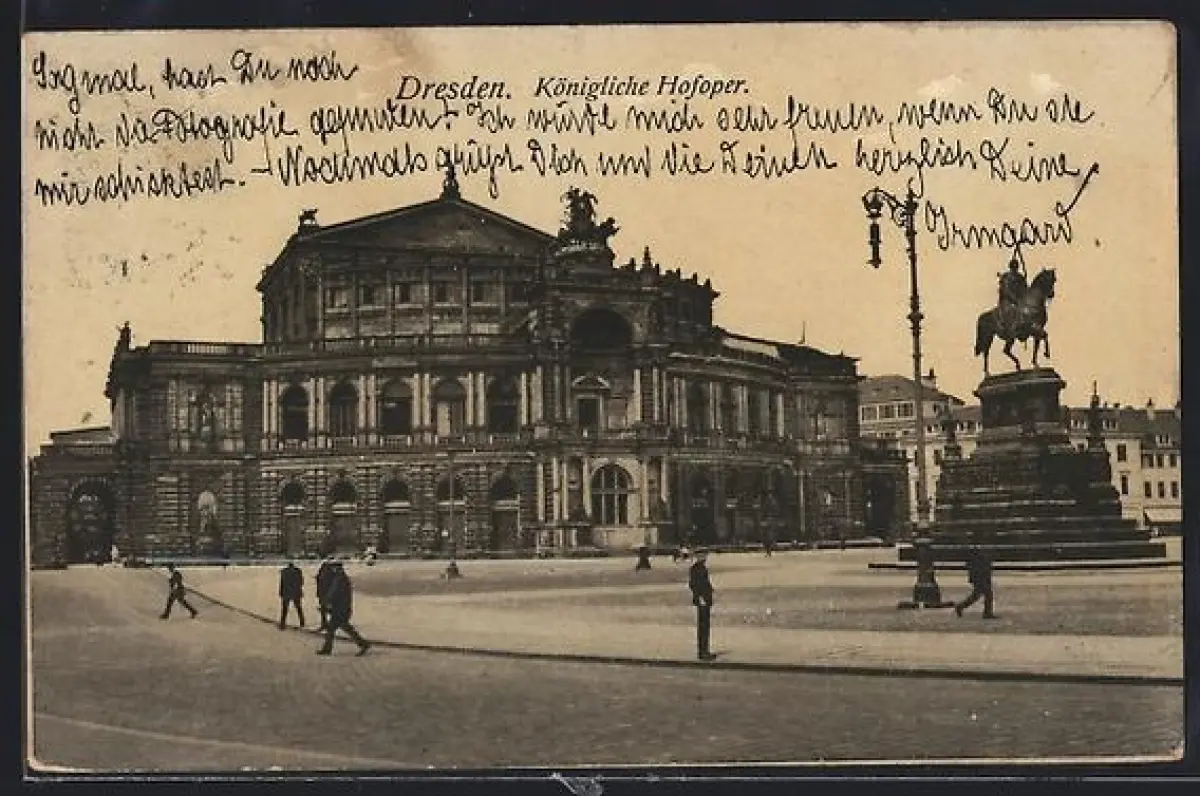 Sag mal, hast Du noch
Dresden. Königliche Hofoper.
nicht die Fotografie gefunden? Ich würde mich sehr freuen, wenn Du sie
mir schicktest. – Nochmals grüßt Dich und die Deinen herzlich Deine
Irmgard.